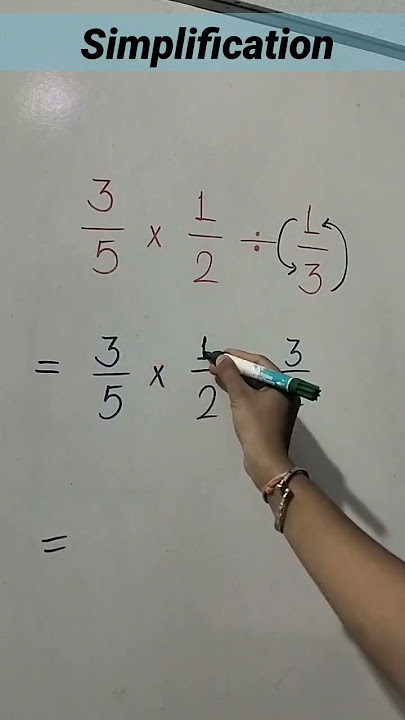 Simplification
3/5 x 1/2 ÷ 1/3
= 3/5 x 1/2 3
=